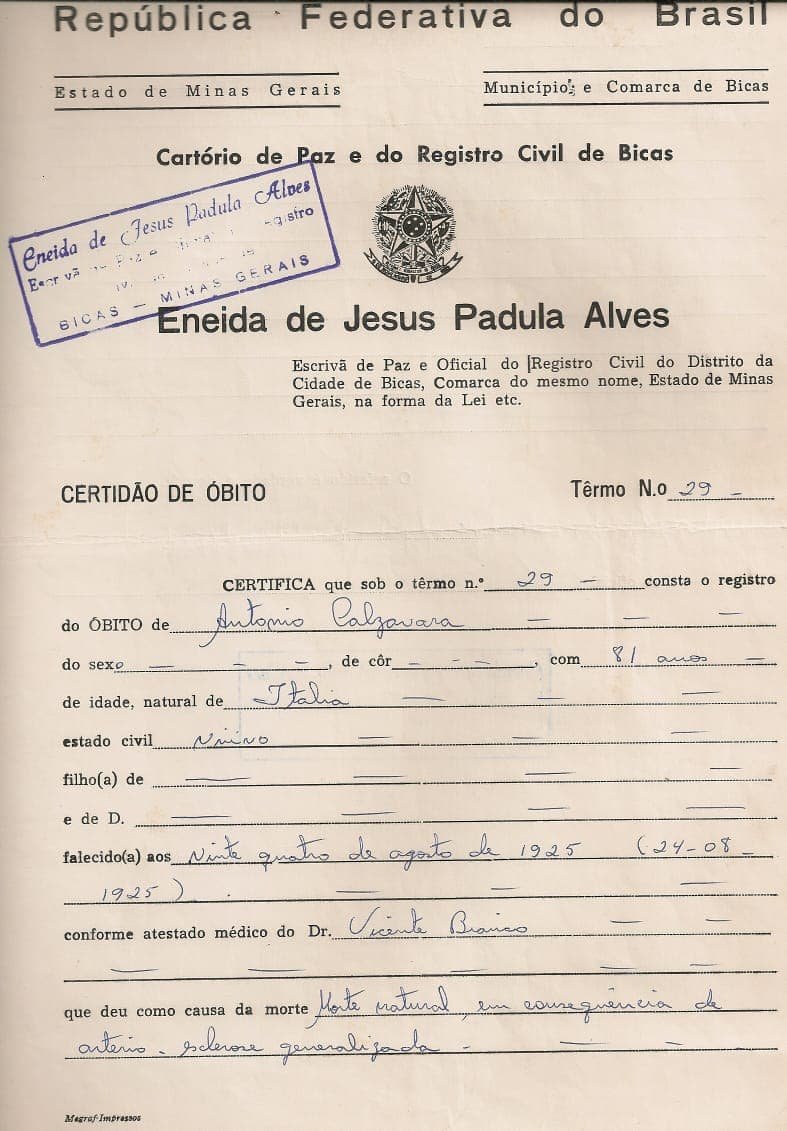 República Federativa do Brasil
Estado de Minas Gerais
Município e Comarca de Bicas
Cartório de Paz e do Registro Civil de Bicas
Eneida de Jesus Padula Alves
BICAS — MINAS GERAIS
Eneida de Jesus Padula Alves
Escrivã de Paz e Oficial do Registro Civil do Distrito da
Cidade de Bicas, Comarca do mesmo nome, Estado de Minas
Gerais, na forma da Lei etc.
CERTIDÃO DE ÓBITO
Têrmo N.o 29 -
CERTIFICA que sob o têrmo n.º 29 — consta o registro
do ÓBITO de Antonio Calzavara — — —
do sexo — — —, de côr — — —, com 81 anos —
de idade, natural de Italia — —
estado civil Viúvo — — —
filho(a) de — — — —
e de D. — — — —
falecido(a) aos Vinte quatro de agosto de 1925 (24-08-
1925). — — —
conforme atestado médico do Dr. Vicente Bianco — —
— — — — —
que deu como causa da morte Morte natural, em consequência de
arterio-esclerose generalizada - — —
Megraf-Impressos